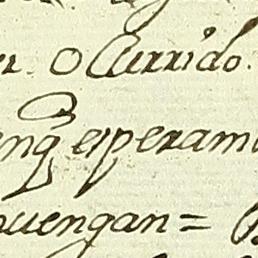 r. Ocurrido.
enq̃ esperam
uengan=